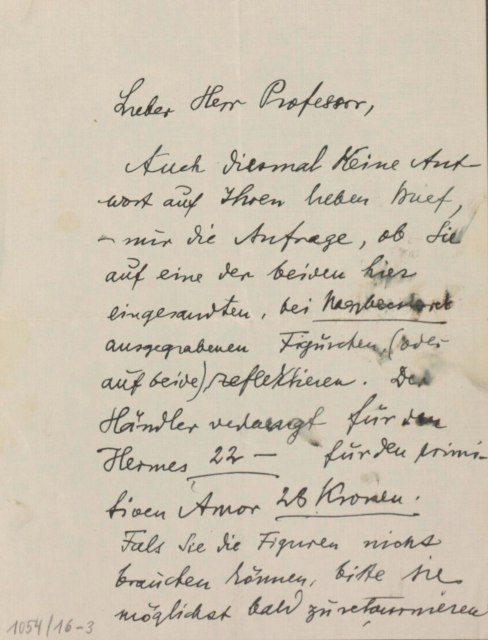 Lieber Herr Professor,
Auch diesmal keine Ant-
wort auf Ihren lieben Brief,
– nur die Anfrage, ob Sie
auf eine der beiden hier
eingesandten, bei
ausgegrabenen Figürchen, (oder
auf beide) reflektieren. Der
Händler verlangt für den
Hermes 22 – für den primi-
tiven Amor 28 Kronen.
Fals Sie die Figuren nicht
brauchen können, bitte sie
möglichst bald zu retournieren
1054/16-3